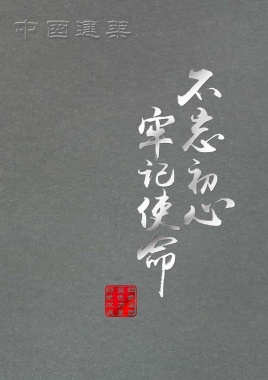 中國建築
不忘初心
牢记使命